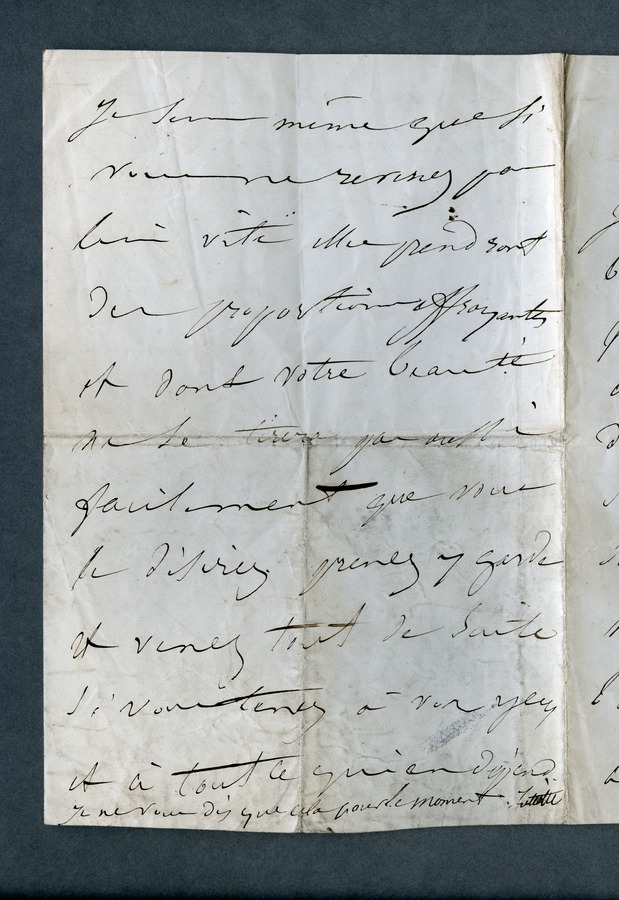 Je sens même que si
vous ne revenez pas
bien vite elles prendront
des proportions effrayantes
et dont votre beauté
ne se tirera pas aussi
facilement que vous
le désirez prenez y garde
et venez tout de suite
si vous tenez à vos yeux
et à tout ce qui en dépend
Je ne vous dis que cela pour le moment